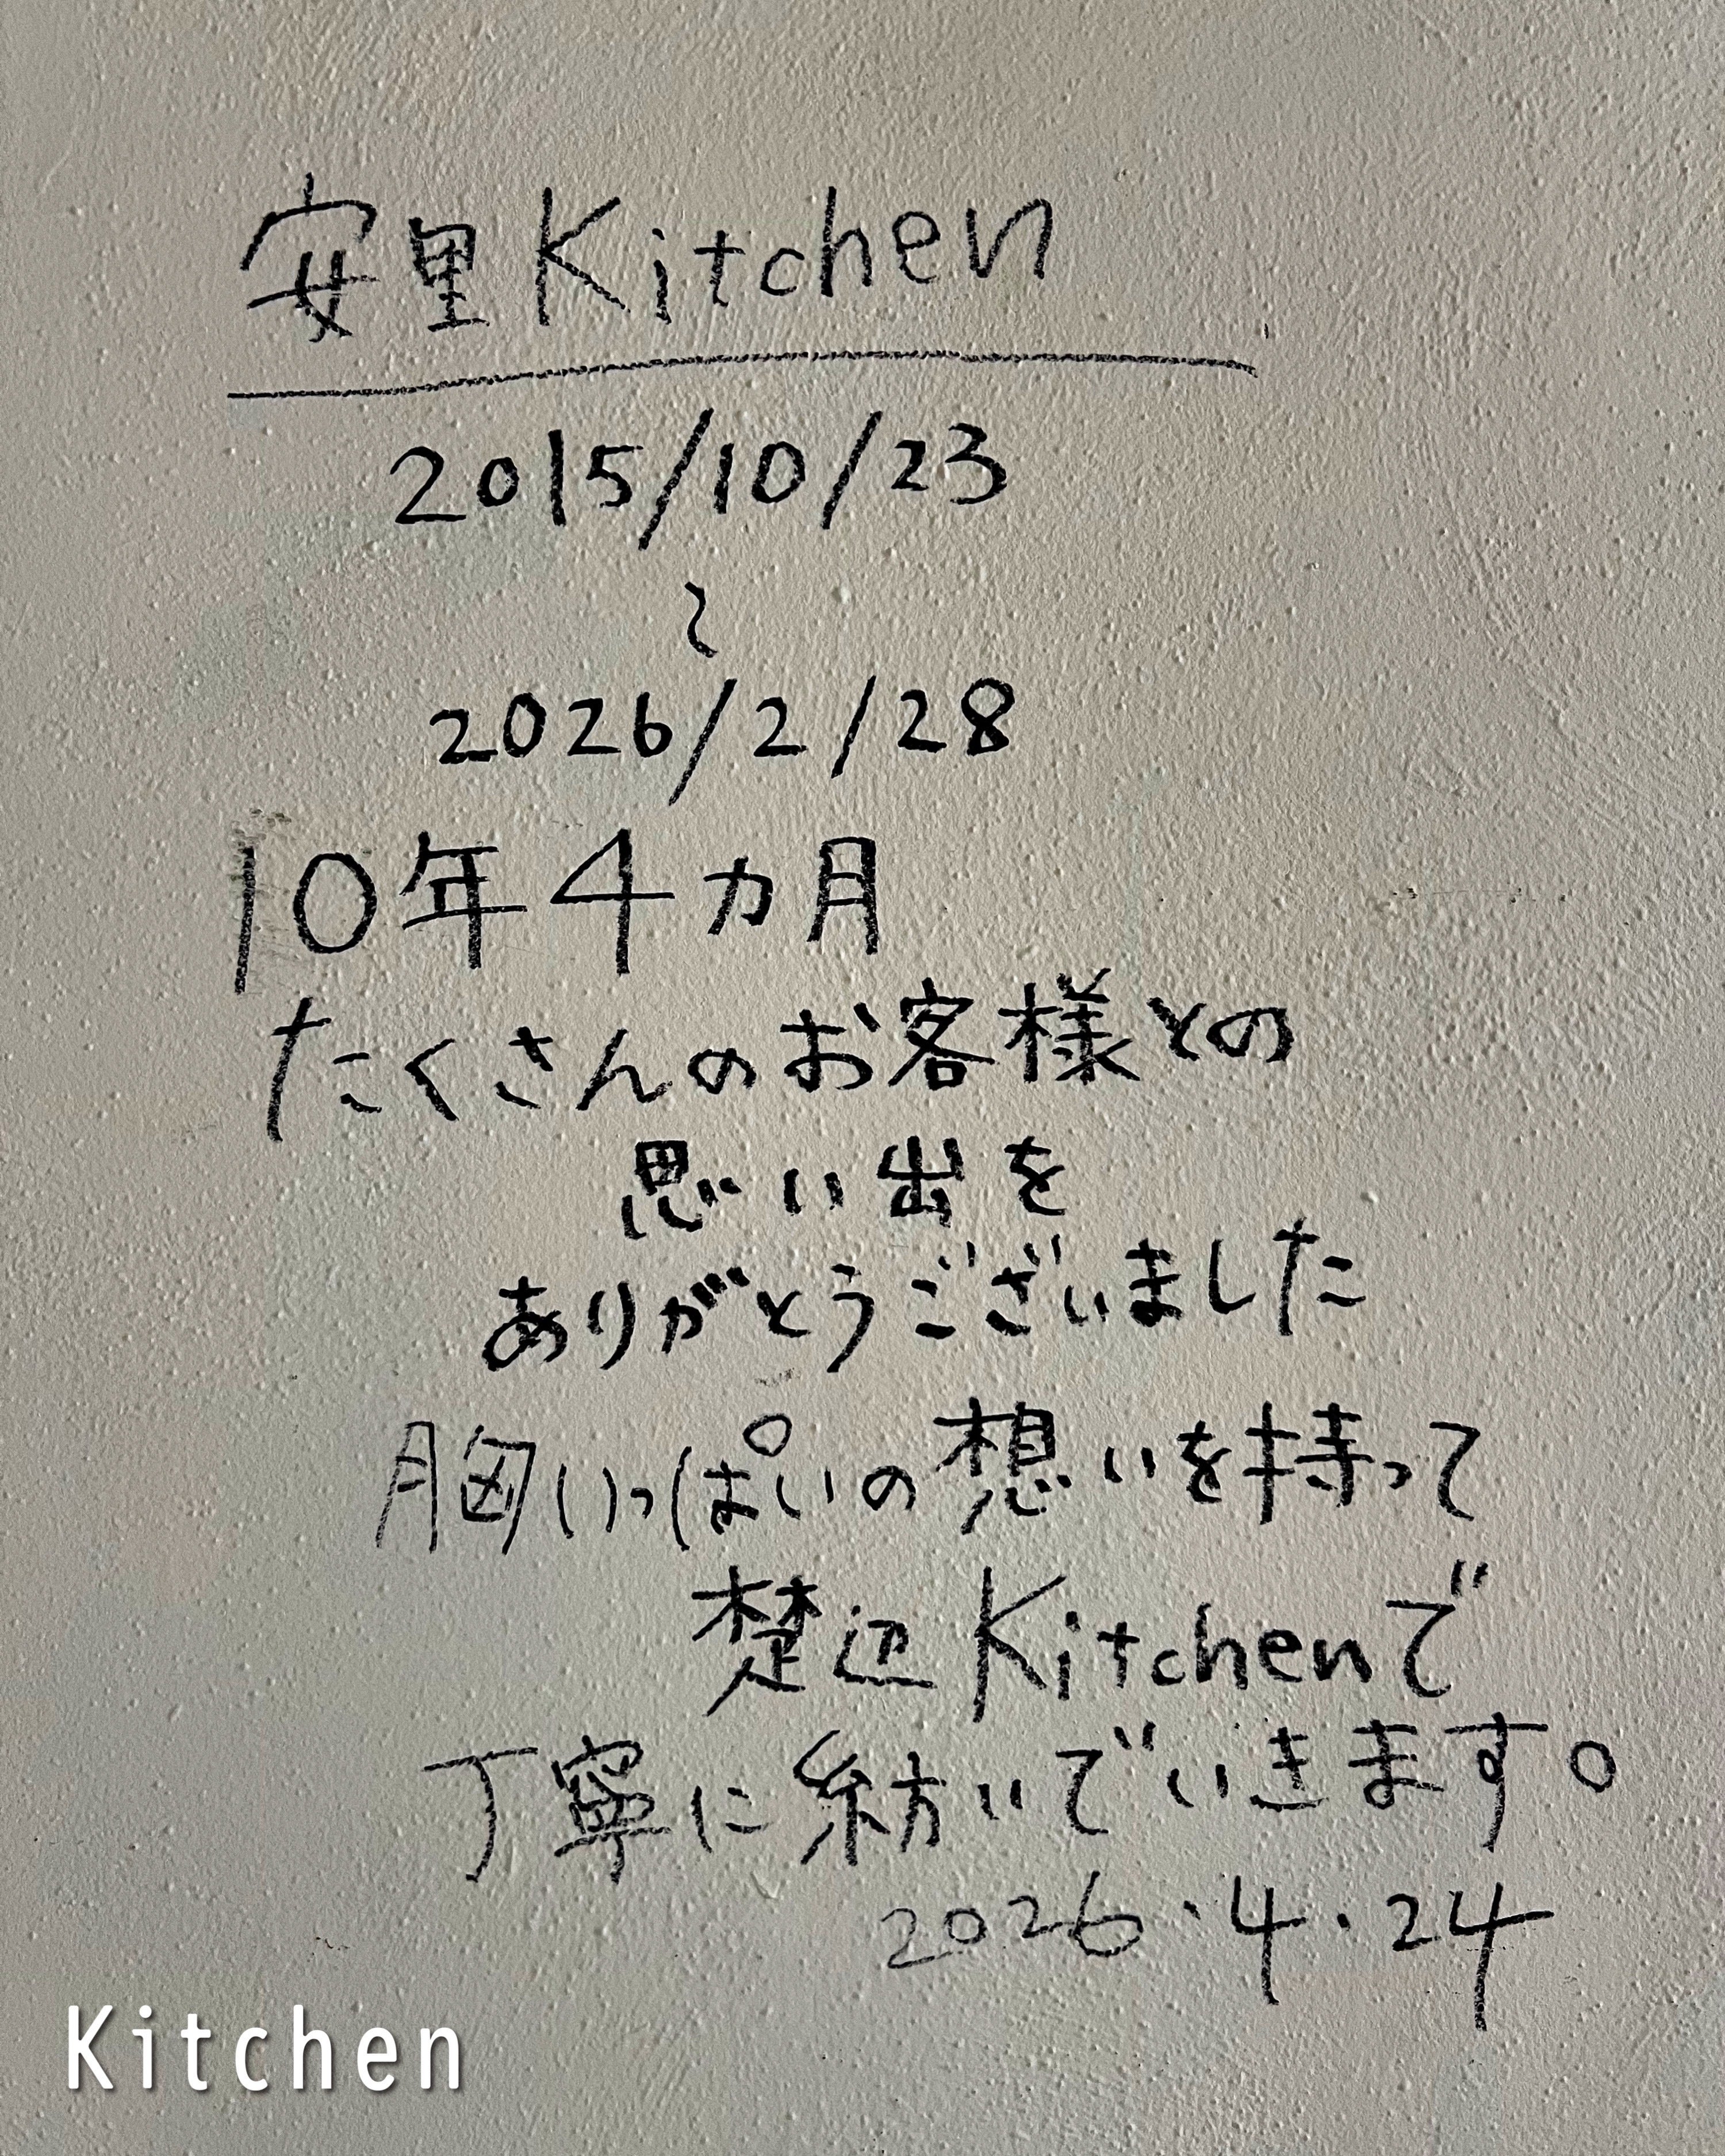 安里Kitchen
2015/10/23
〜
2026/2/28
10年4カ月
たくさんのお客様との
思い出を
ありがとうございました
胸いっぱいの想いを持って
楚辺Kitchenで
丁寧に紡いでいきます。
2026.4.24
Kitchen